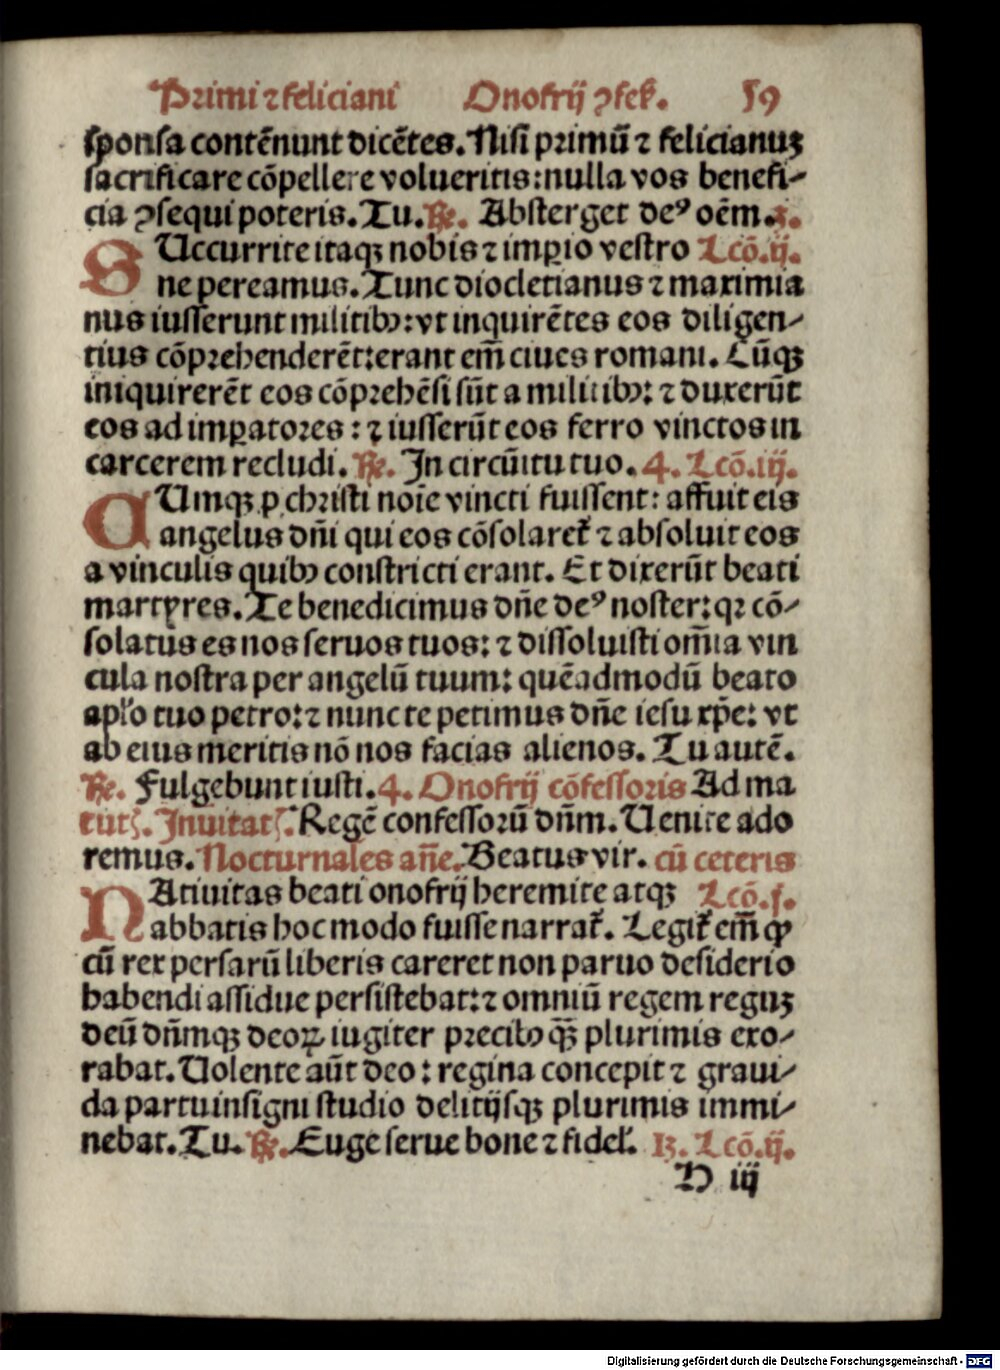 Primi ⁊ feliciani Onofrij ꝯfeſ. 59
ſponſa contēnunt dicētes. Niſi primū ⁊ felicianuʒ
ſacrificare cōpellere volueritis: nulla vos benefi⸗
cia ꝯſequi poteris. Tu. ℞. Abſterget deꝰ oēm. 3.
SUccurrite itaqʒ nobis ⁊ imꝑio veſtro Lcō. ij.
ne pereamus. Tunc diocletianus ⁊ maximia
nus iuſſerunt militibꝰ: vt inquirētes eos diligen⸗
tius cōprehenderēt: erant em̄ ciues romani. Cūqʒ
iniquirerēt eos cōprehēſi ſūt a militibꝰ: ⁊ duxerūt
eos ad imꝑatores: ⁊ iuſſerūt eos ferro vinctos in
carcerem recludi. ℞. In circūitu tuo. 4. Lcō. iij.
CUmqʒ ꝓ chriſti noīe vincti fuiſſent: affuit eis
angelus dn̄i qui eos cōſolaret᷑ ⁊ abſoluit eos
a vinculis quibꝰ conſtricti erant. Et dixerūt beati
martyres. Te benedicimus dn̄e deꝰ noſter: qꝛ cō⸗
ſolatus es nos ſeruos tuos: ⁊ diſſoluiſti om̄ia vin
cula noſtra per angelū tuum: quēadmodū beato
apl̓o tuo petro: ⁊ nunc te petimus dn̄e ieſu xp̄e: vt
ab eius meritis nō nos facias alienos. Tu autē.
℞. Fulgebunt iuſti. 4. Onofrij cōfeſſoris Ad ma
tut᷑. Inuitat᷑. Regē confeſſorū dn̄m. Uenite ado
remus. Nocturnales an̄e. Beatus vir. cū ceteris
NAtiuitas beati onofrij heremite atqʒ Lcō. j.
abbatis hoc modo fuiſſe narrat᷑. Legit᷑ em̄ ꝙ
cū rex perſarū liberis careret non paruo deſiderio
habendi aſſidue perſiſtebat: ⁊ omniū regem reguʒ
deū dn̄mqʒ deoꝝ iugiter precibꝰ qʒ̄ plurimis exo⸗
rabat. Uolente aūt deo: regina concepit ⁊ graui⸗
da partu inſigni ſtudio delitijſqʒ plurimis immi⸗
nebat. Tu. ℞. Euge ſerue bone ⁊ fidel̓. 13. Lcō. ij.
H iij
Digitalisierung gefördert durch die Deutsche Forschungsgemeinschaft - DFG